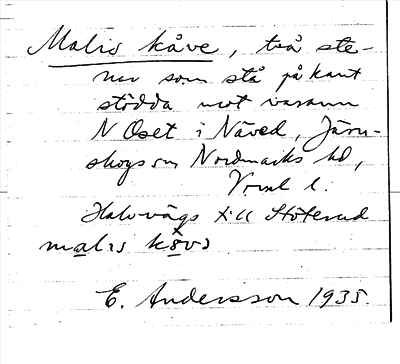 Malis kåve, två ste-
nar som stå på kant
stödda mot varann
N Oset i Näved, Järn-
skogs sn Nordmarks hd,
Vrml l.
Halvvägs till Stöterud
malis
E. Andersson 1935.